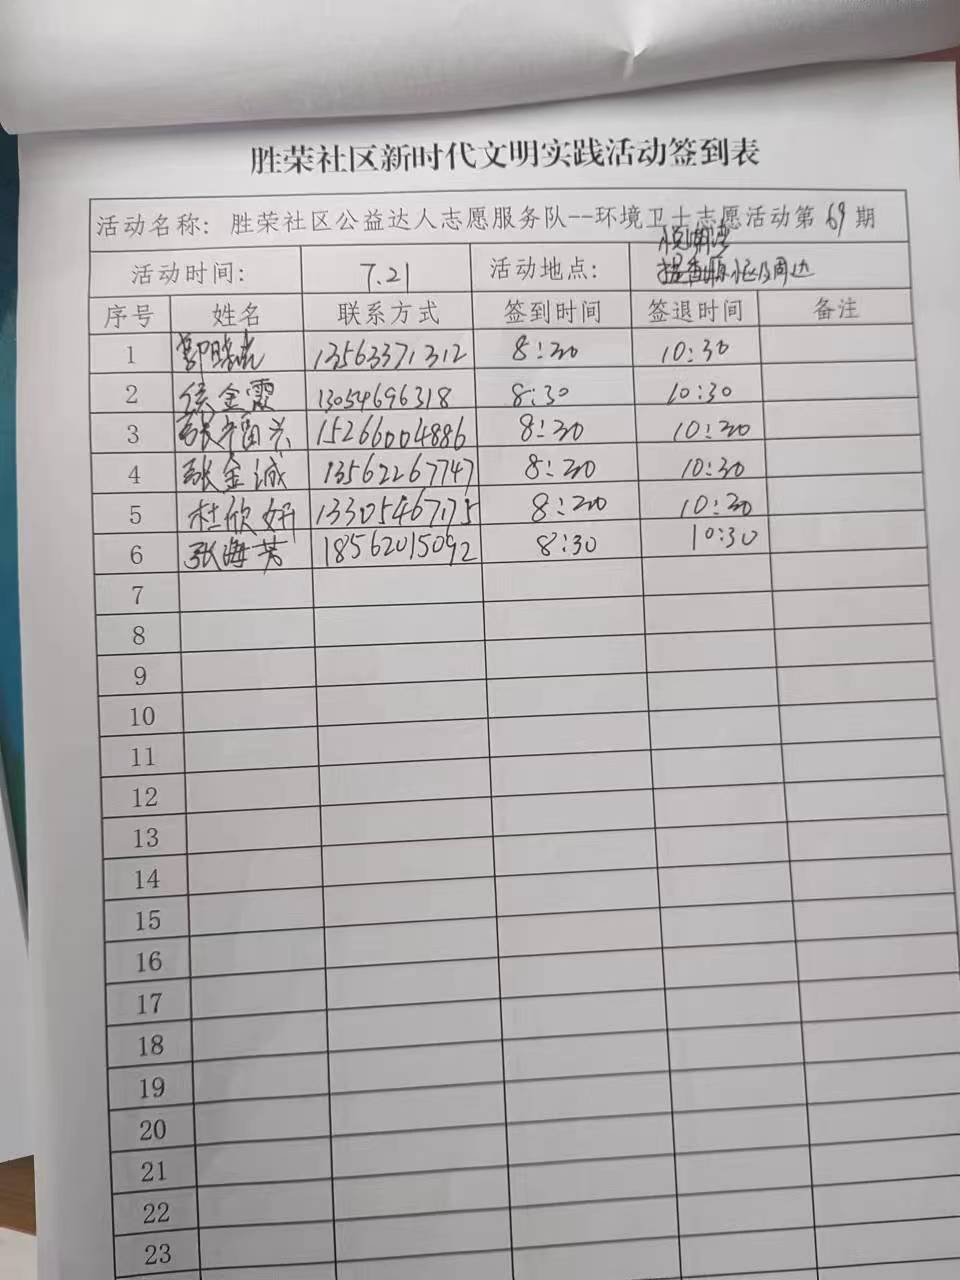 胜荣社区新时代文明实践活动签到表
活动名称：胜荣社区公益达人志愿服务队--环境卫士志愿活动第69期
活动时间： 7.21 活动地点： 及周边
序号 姓名 联系方式 签到时间 签退时间 备注
1 郭晓 13563371312 8:30 10:30
2 侯金霞 13054696318 8:30 10:30
3 张福兴 15266004886 8:30 10:30
4 张金诚 13562267747 8:30 10:30
5 杜欣妍 13305467175 8:30 10:30
6 张海芳 18562015092 8:30 10:30
7
8
9
10
11
12
13
14
15
16
17
18
19
20
21
22
23